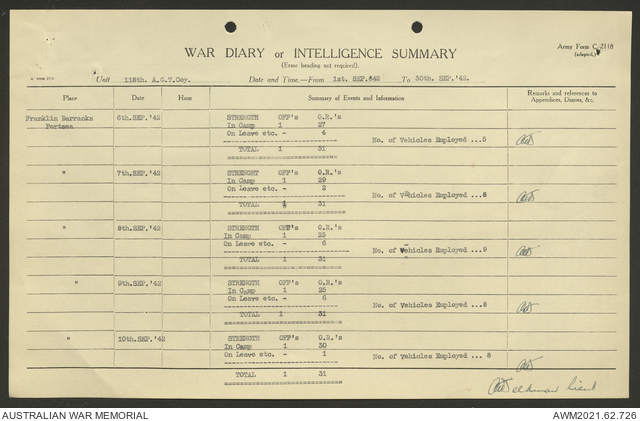 WAR DIARY or INTELLIGENCE SUMMARY
(Erase heading not required).
Army Form C-2118
(adapted.)
Unit 118th. A.G.T.Coy. Date and Time.—From 1st. SEP.'42 To 30th. SEP.'42.
Place Date Hour Summary of Events and Information Remarks and references to Appendices, Diaries, &c.
Franklin Barracks 6th.SEP.'42 STRENGTH OFF's O.R.'s
Portsea In Camp 1 27
On Leave etc. - 4
No. of Vehicles Employed ...5
TOTAL 1 31
" 7th.SEP.'42 STRENGHT OFF's O.R.'s
In Camp 1 29
On Leave etc. - 2
No. of Vehicles Employed ...8
TOTAL 1 31
" 8th.SEP.'42 STRENGTH OFF's O.R.'s
In Camp 1 25
On Leave etc. - 6
No. of Vehicles Employed ...9
TOTAL 1 31
" 9th.SEP.'42 STRENGTH OFF's O.R.'s
In Camp 1 25
On Leave etc. - 6
No. of Vehicles Employed ...8
TOTAL 1 31
" 10th.SEP.'42 STRENGTH OFF's O.R.'s
In Camp 1 30
On Leave etc. - 1
No. of Vehicles Employed ... 8
TOTAL 1 31
Lieut
AUSTRALIAN WAR MEMORIAL AWM2021.62.726